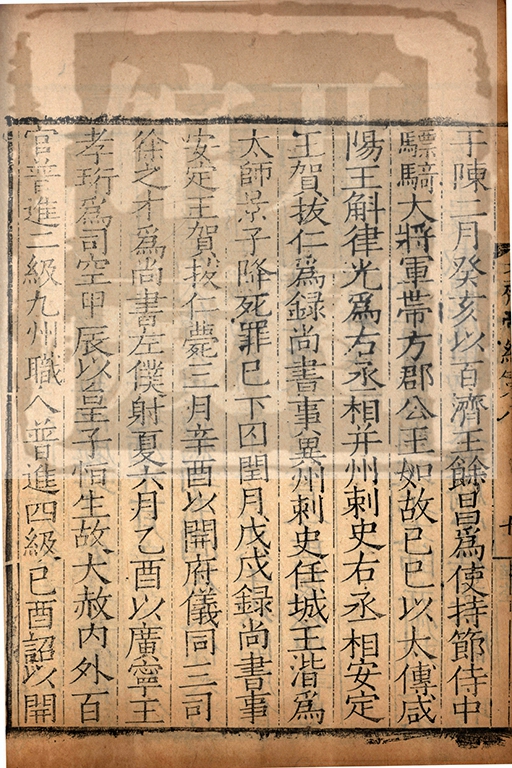 于陳二月癸亥以百濟王餘昌爲使持節侍中
驃騎大將軍帶方郡公王如故己巳以太傅咸
陽王斛律光爲右丞相并州刺史右丞相安定
王賀拔仁爲録尚書事冀州刺史任城王湝爲
太師景子降死罪已下囚閏月戊戌録尚書事
安定王賀拔仁薨三月辛酉以開府儀同三司
徐之才爲尚書左僕射夏六月乙酉以廣寧王
孝珩爲司空甲辰以皇子恒生故大赦内外百
官普進二級九州職人普進四級己酉詔以開